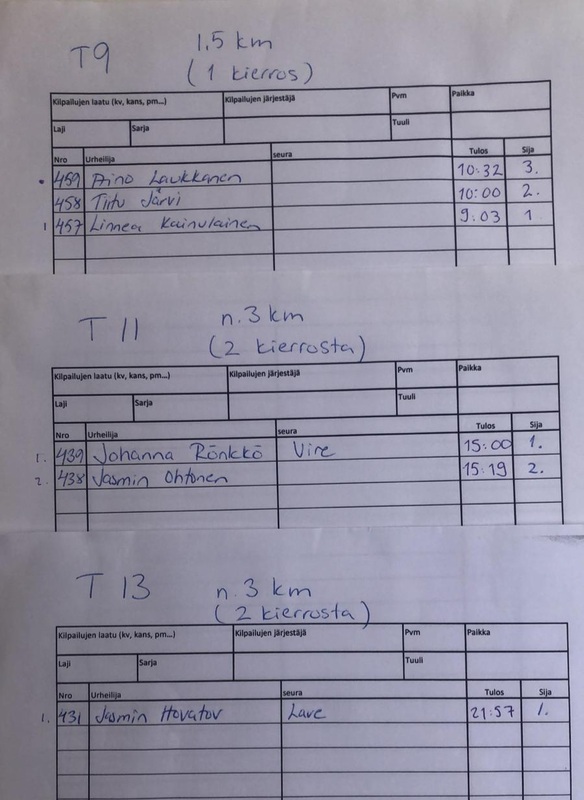 T9 1,5 km
(1 kierros)
Kilpailujen laatu (kv, kans, pm...) Kilpailujen järjestäjä Pvm Paikka
Laji Sarja Tuuli
Nro Urheilija seura Tulos Sija
459 Aino Laukkanen 10:32 3.
458 Tiitu Järvi 10:00 2.
1 457 Linnea Kainulainen 9:03 1
T 11 n. 3 km
(2 kierrosta)
Kilpailujen laatu (kv, kans, pm...) Kilpailujen järjestäjä Pvm Paikka
Laji Sarja Tuuli
Nro Urheilija seura Tulos Sija
1. 439 Johanna Rönkkö Vire 15:00 1.
2. 438 Jasmin Ohtonen 15:19 2.
T 13 n. 3 km
(2 kierrosta)
Kilpailujen laatu (kv, kans, pm...) Kilpailujen järjestäjä Pvm Paikka
Laji Sarja Tuuli
Nro Urheilija seura Tulos Sija
1. 431 Jasmin Hovatov Lave 21:57 1.